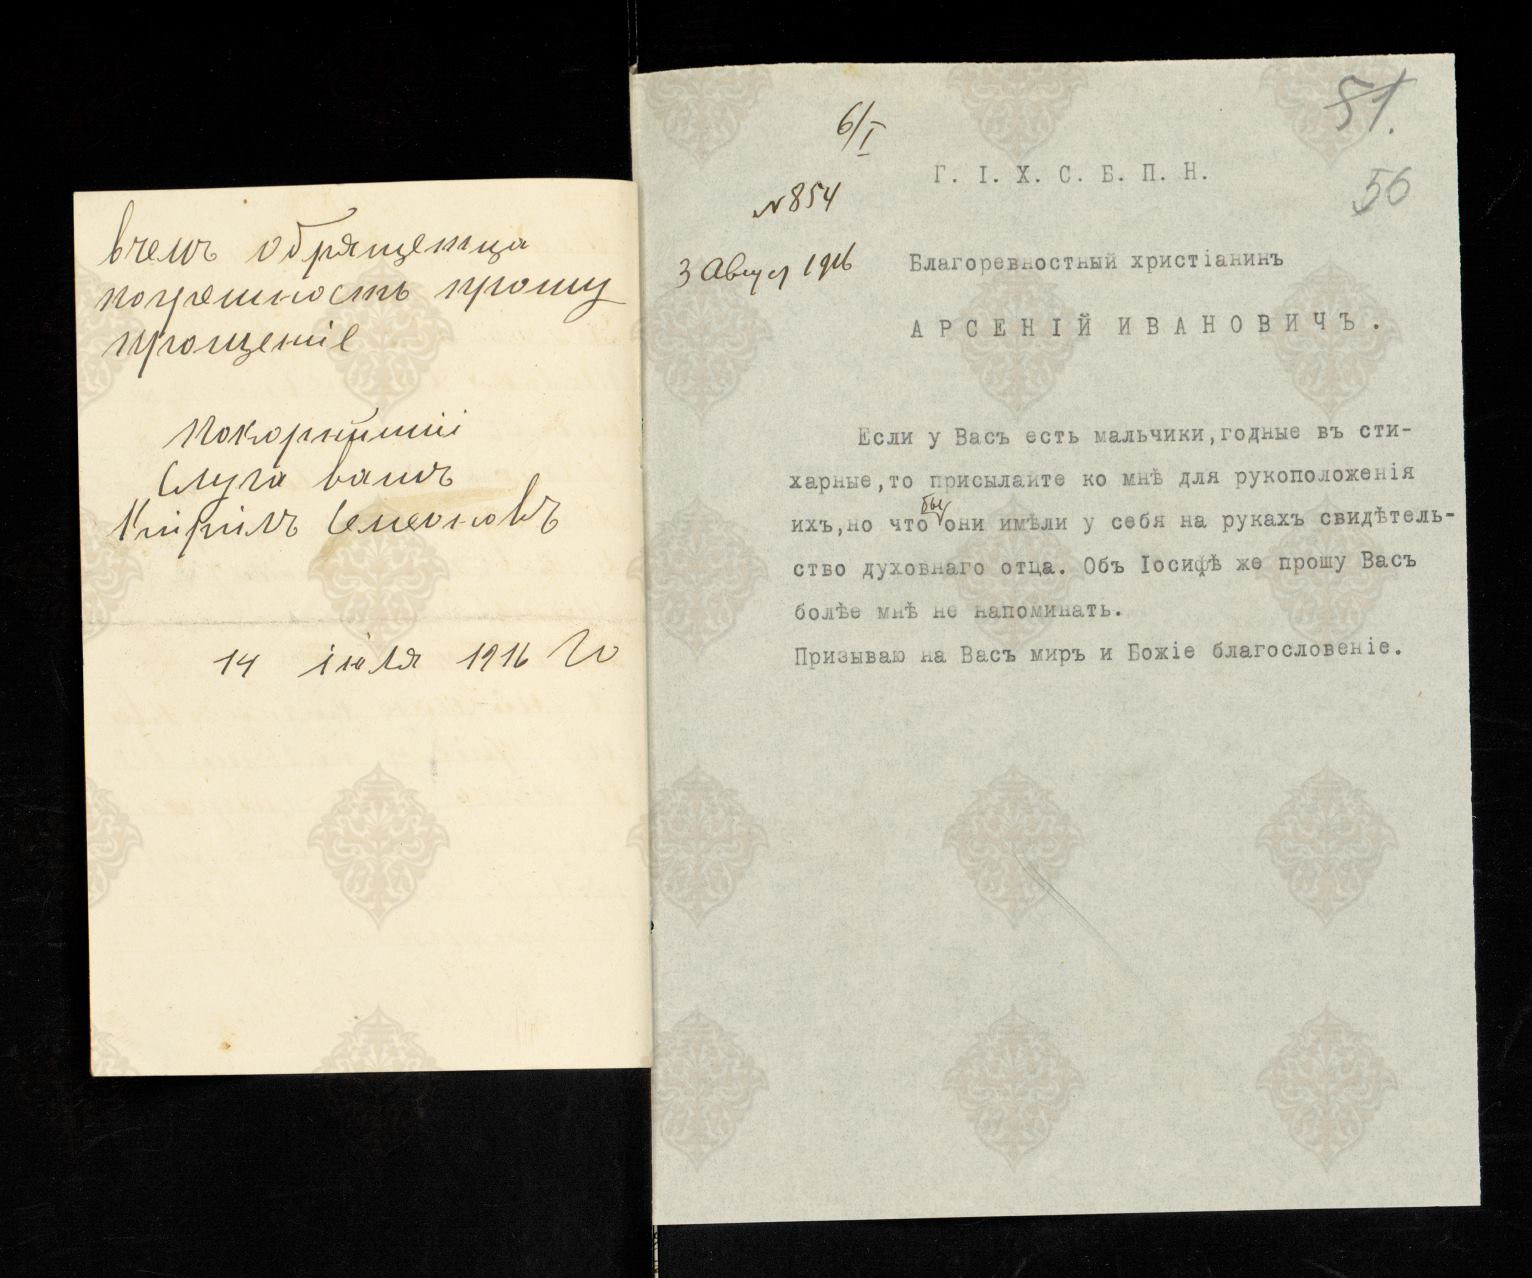 вчемъ обрящетца
погрешность прошу
прощеніе
Покорнѣйшіи
Слуга вашъ
Кирилъ Семеоновъ
14 іюля 1916 го
6/I
51.
56
Г. І. Х. С. Б. П. Н.
№ 854
3 Август 1916
Благоревностный христіанинъ
АРСЕНІЙ ИВАНОВИЧЪ.
Если у Васъ есть мальчики, годные въ сти-
харные, то присылайте ко мнѣ для рукоположенія
ихъ, но что бы они имѣли у себя на рукахъ свидѣтель-
ство духовнаго отца. Объ Іосифѣ же прошу Васъ
болѣе мнѣ не напоминать.
Призываю на Васъ миръ и Божіе благословеніе.